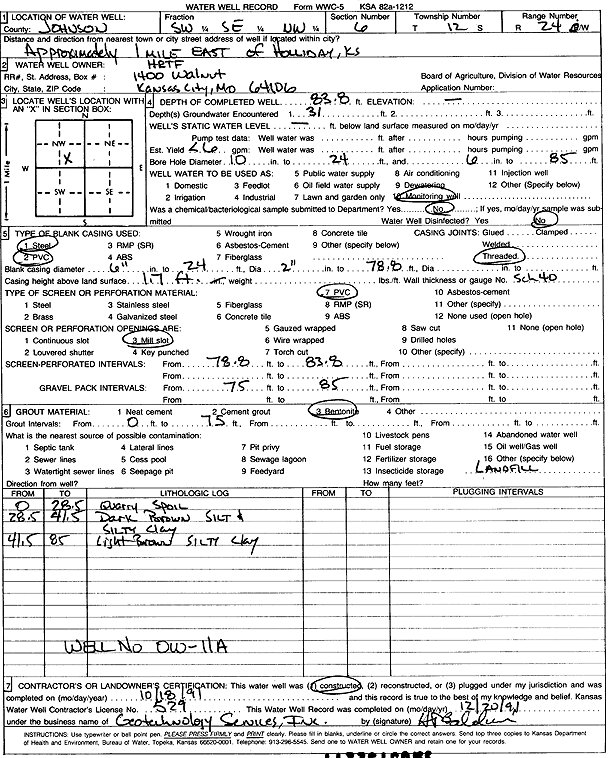 WATER WELL RECORD Form WWC-5 KSA 82a-1212
1 LOCATION OF WATER WELL: Fraction Section Number Township Number Range Number
County: JOHNSON SW ¼ SE ¼ NW ¼ 6 T 12 S R 24 E/W
Distance and direction from nearest town or city street address of well if located within city?
Approximately 1 mile EAST of Holliday, KS
2 WATER WELL OWNER: HRTF
RR#, St. Address, Box # : 1400 Walnut Board of Agriculture, Division of Water Resources
City, State, ZIP Code : Kansas City, MO 64106 Application Number:
3 LOCATE WELL'S LOCATION WITH AN "X" IN SECTION BOX:
N
NW NE
X
W E
SW SE
S
1 Mile
4 DEPTH OF COMPLETED WELL 83.8 ft. ELEVATION: —
Depth(s) Groundwater Encountered 1. 31 ft. 2. ft. 3. ft.
WELL'S STATIC WATER LEVEL — ft. below land surface measured on mo/day/yr
Pump test data: Well water was ft. after hours pumping gpm
Est. Yield <.6 gpm: Well water was ft. after hours pumping gpm
Bore Hole Diameter 10 in. to 24 ft., and 6 in. to 85 ft.
WELL WATER TO BE USED AS: 5 Public water supply 8 Air conditioning 11 Injection well
1 Domestic 3 Feedlot 6 Oil field water supply 9 Dewatering 12 Other (Specify below)
2 Irrigation 4 Industrial 7 Lawn and garden only 10 Monitoring well
Was a chemical/bacteriological sample submitted to Department? Yes No ; If yes, mo/day/yr sample was submitted Water Well Disinfected? Yes No
5 TYPE OF BLANK CASING USED: 5 Wrought iron 8 Concrete tile CASING JOINTS: Glued Clamped
1 Steel 3 RMP (SR) 6 Asbestos-Cement 9 Other (specify below) Welded
2 PVC 4 ABS 7 Fiberglass Threaded
Blank casing diameter 6" in. to 24 ft., Dia 2" in. to 78.8 ft., Dia in. to ft.
Casing height above land surface 1.7 ft. in., weight lbs./ft. Wall thickness or gauge No. Sch 40
TYPE OF SCREEN OR PERFORATION MATERIAL: 7 PVC 10 Asbestos-cement
1 Steel 3 Stainless steel 5 Fiberglass 8 RMP (SR) 11 Other (specify)
2 Brass 4 Galvanized steel 6 Concrete tile 9 ABS 12 None used (open hole)
SCREEN OR PERFORATION OPENINGS ARE: 5 Gauzed wrapped 8 Saw cut 11 None (open hole)
1 Continuous slot 3 Mill slot 6 Wire wrapped 9 Drilled holes
2 Louvered shutter 4 Key punched 7 Torch cut 10 Other (specify)
SCREEN-PERFORATED INTERVALS: From 78.8 ft. to 83.8 ft., From ft. to ft.
From ft. to ft., From ft. to ft.
GRAVEL PACK INTERVALS: From 75 ft. to 85 ft., From ft. to ft.
From ft. to ft., From ft. to ft.
6 GROUT MATERIAL: 1 Neat cement 2 Cement grout 3 Bentonite 4 Other
Grout Intervals: From 0 ft. to 75 ft., From ft. to ft., From ft. to ft.
What is the nearest source of possible contamination: 10 Livestock pens 14 Abandoned water well
1 Septic tank 4 Lateral lines 7 Pit privy 11 Fuel storage 15 Oil well/Gas well
2 Sewer lines 5 Cess pool 8 Sewage lagoon 12 Fertilizer storage 16 Other (specify below)
3 Watertight sewer lines 6 Seepage pit 9 Feedyard 13 Insecticide storage LANDFILL
Direction from well? How many feet?
FROM TO LITHOLOGIC LOG FROM TO PLUGGING INTERVALS
0 28.5 Quarry Spoil
28.5 41.5 Dark Brown SILT &
SILTY Clay
41.5 85 Light Brown SILTY Clay
WELL NO OW-11A
7 CONTRACTOR'S OR LANDOWNER'S CERTIFICATION: This water well was (1) constructed, (2) reconstructed, or (3) plugged under my jurisdiction and was
completed on (mo/day/year) 10/18/91 and this record is true to the best of my knowledge and belief. Kansas
Water Well Contractor's License No. 529 This Water Well Record was completed on (mo/day/yr) 12/20/91
under the business name of Geotechnology Services, Inc. by (signature)
INSTRUCTIONS: Use typewriter or ball point pen. PLEASE PRESS FIRMLY and PRINT clearly. Please fill in blanks, underline or circle the correct answers. Send top three copies to Kansas Department
of Health and Environment, Bureau of Water, Topeka, Kansas 66620-0001. Telephone: 913-296-5545. Send one to WATER WELL OWNER and retain one for your records.